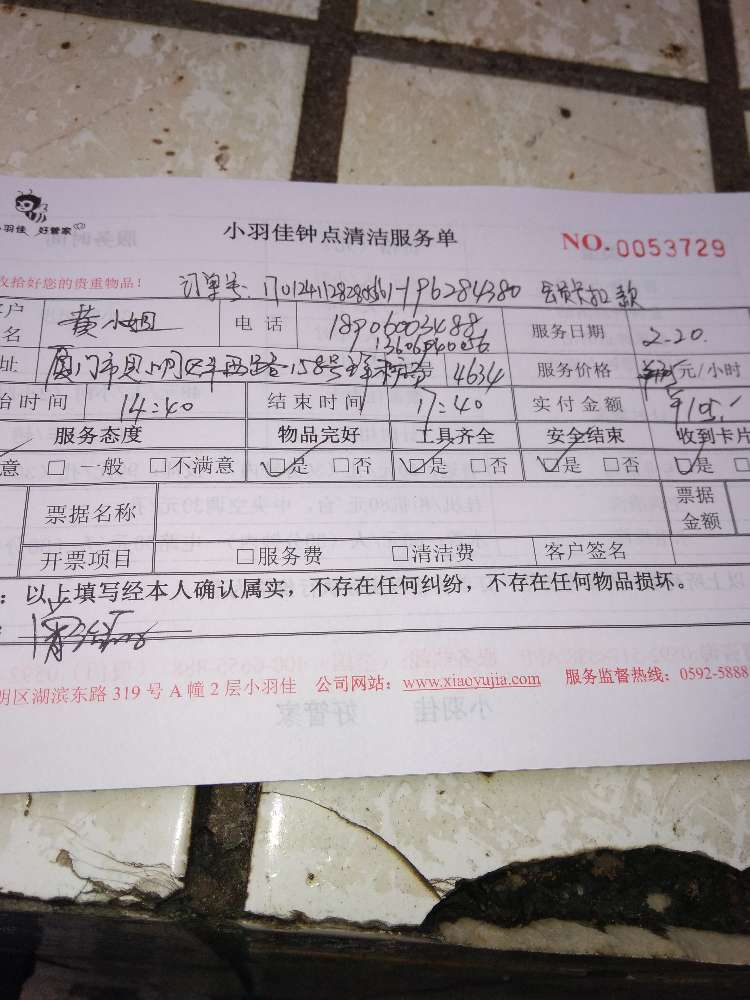 羽佳 好管家
小羽佳钟点清洁服务单
NO.0053729
收拾好您的贵重物品!
订单号: 会员卡扣款
户名 黄小姐 电话 18906003488 服务日期 2.20.
址 4634 服务价格 元/小时
始时间 14:40 结束时间 17:40 实付金额 ¥105/
服务态度 物品完好 工具齐全 安全结束 收到卡片
意 □一般 □不满意 □是 □否 □是 □否 □是 □否 □是 □
票据名称 票据金额
开票项目 □服务费 □清洁费 客户签名
: 以上填写经本人确认属实，不存在任何纠纷，不存在任何物品损坏。
明区湖滨东路 319 号 A 幢 2 层小羽佳 公司网站: www.xiaoyujia.com 服务监督热线: 0592-5888